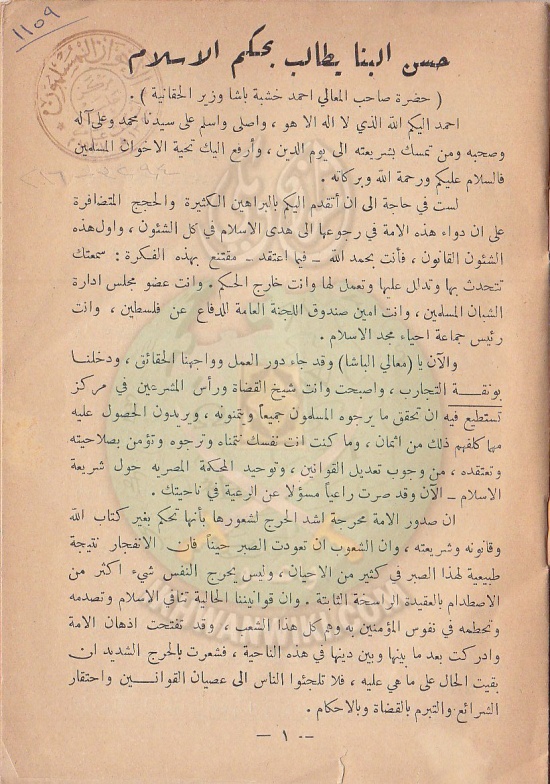 ١١٥٩
حسن البنا يطالب بحكم الاسلام
( حضرة صاحب المعالي احمد خشبة باشا وزير الحقانية ) .
احمد اليكم الله الذي لا اله الا هو ، واصلى واسلم على سيدنا محمد وعلى آله
وصحبه ومن تمسك بشريعته الى يوم الدين ، وأرفع اليك تحية الاخوان المسلمين
فالسلام عليكم ورحمة الله وبركاته .
لست في حاجة الى ان أتقدم اليكم بالبراهين الكثيرة والحجج المتضافرة
على ان دواء هذه الامة في رجوعها الى هدى الاسلام في كل الشئون ، واول هذه
الشئون القانون ، فأنت بحمد الله ــ فيما اعتقد ــ مقتنع بهذه الفكرة : سمعتك
تتحدث بها وتدلل عليها وتعمل لها وانت خارج الحكم . وانت عضو مجلس ادارة
الشبان المسلمين ، وانت امين صندوق اللجنة العامة للدفاع عن فلسطين ، وانت
رئيس جماعة احياء مجد الاسلام .
والآن يا ( معالي الباشا ) وقد جاء دور العمل وواجهنا الحقائق ، ودخلنا
بوتقـــة التجارب ، واصبحت وانت شيخ القضاة ورأس المشرعين في مركز
تستطيع فيه ان تحقق ما يرجوه المسلمون جميعاً ويتمنونه ، ويريدون الحصول عليه
مهما كلفهم ذلك من اثمان ، وما كنت انت نفسك تتمناه وترجوه وتؤمن بصلاحيته
وتعتقده ، من وجوب تعديل القوانين ، وتوحيد المحكمة المصريه حول شريعة
الاسلام ــ الآن وقد صرت راعياً مسؤلا عن الرعية في ناحيتك .
ان صدور الامة محرجة اشد الحرج لشعورها بأنها تحكم بغير كتاب الله
وقانونه وشريعته ، وان الشعوب ان تعودت الصبر حيناً فان الانفجار نتيجة
طبيعية لهذا الصبر في كثير من الاحيان ، وليس يحرج النفس شيء اكثر من
الاصطدام بالعقيدة الراسخة الثابتة . وان قوانيننا الحالية تنافي الاسلام وتصدمه
وتحطمه في نفوس المؤمنين به وهم كل هذا الشعب ، وقد تفتحت اذهان الامة
وادركت بعد ما بينها وبين دينها في هذه الناحية ، فشعرت بالحرج الشديد ان
بقيت الحال على ما هي عليه ، فلا تلجئوا الناس الى عصيان القوانــين واحتقار
الشرائع والتبرم بالقضاة وبالاحكام .
ــ ١ ــ